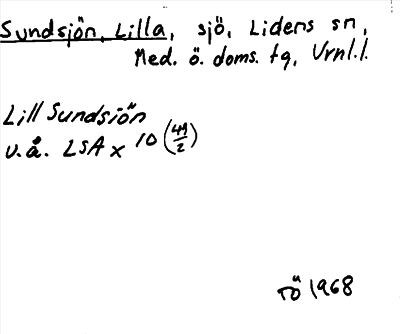 Sundsjön, Lilla, sjö, Lidens sn,
Med. ö. doms. tg, Vrnl.l.
Lill Sundsjön
u.å. LSA x 10 (44/2)
TÖ 1968